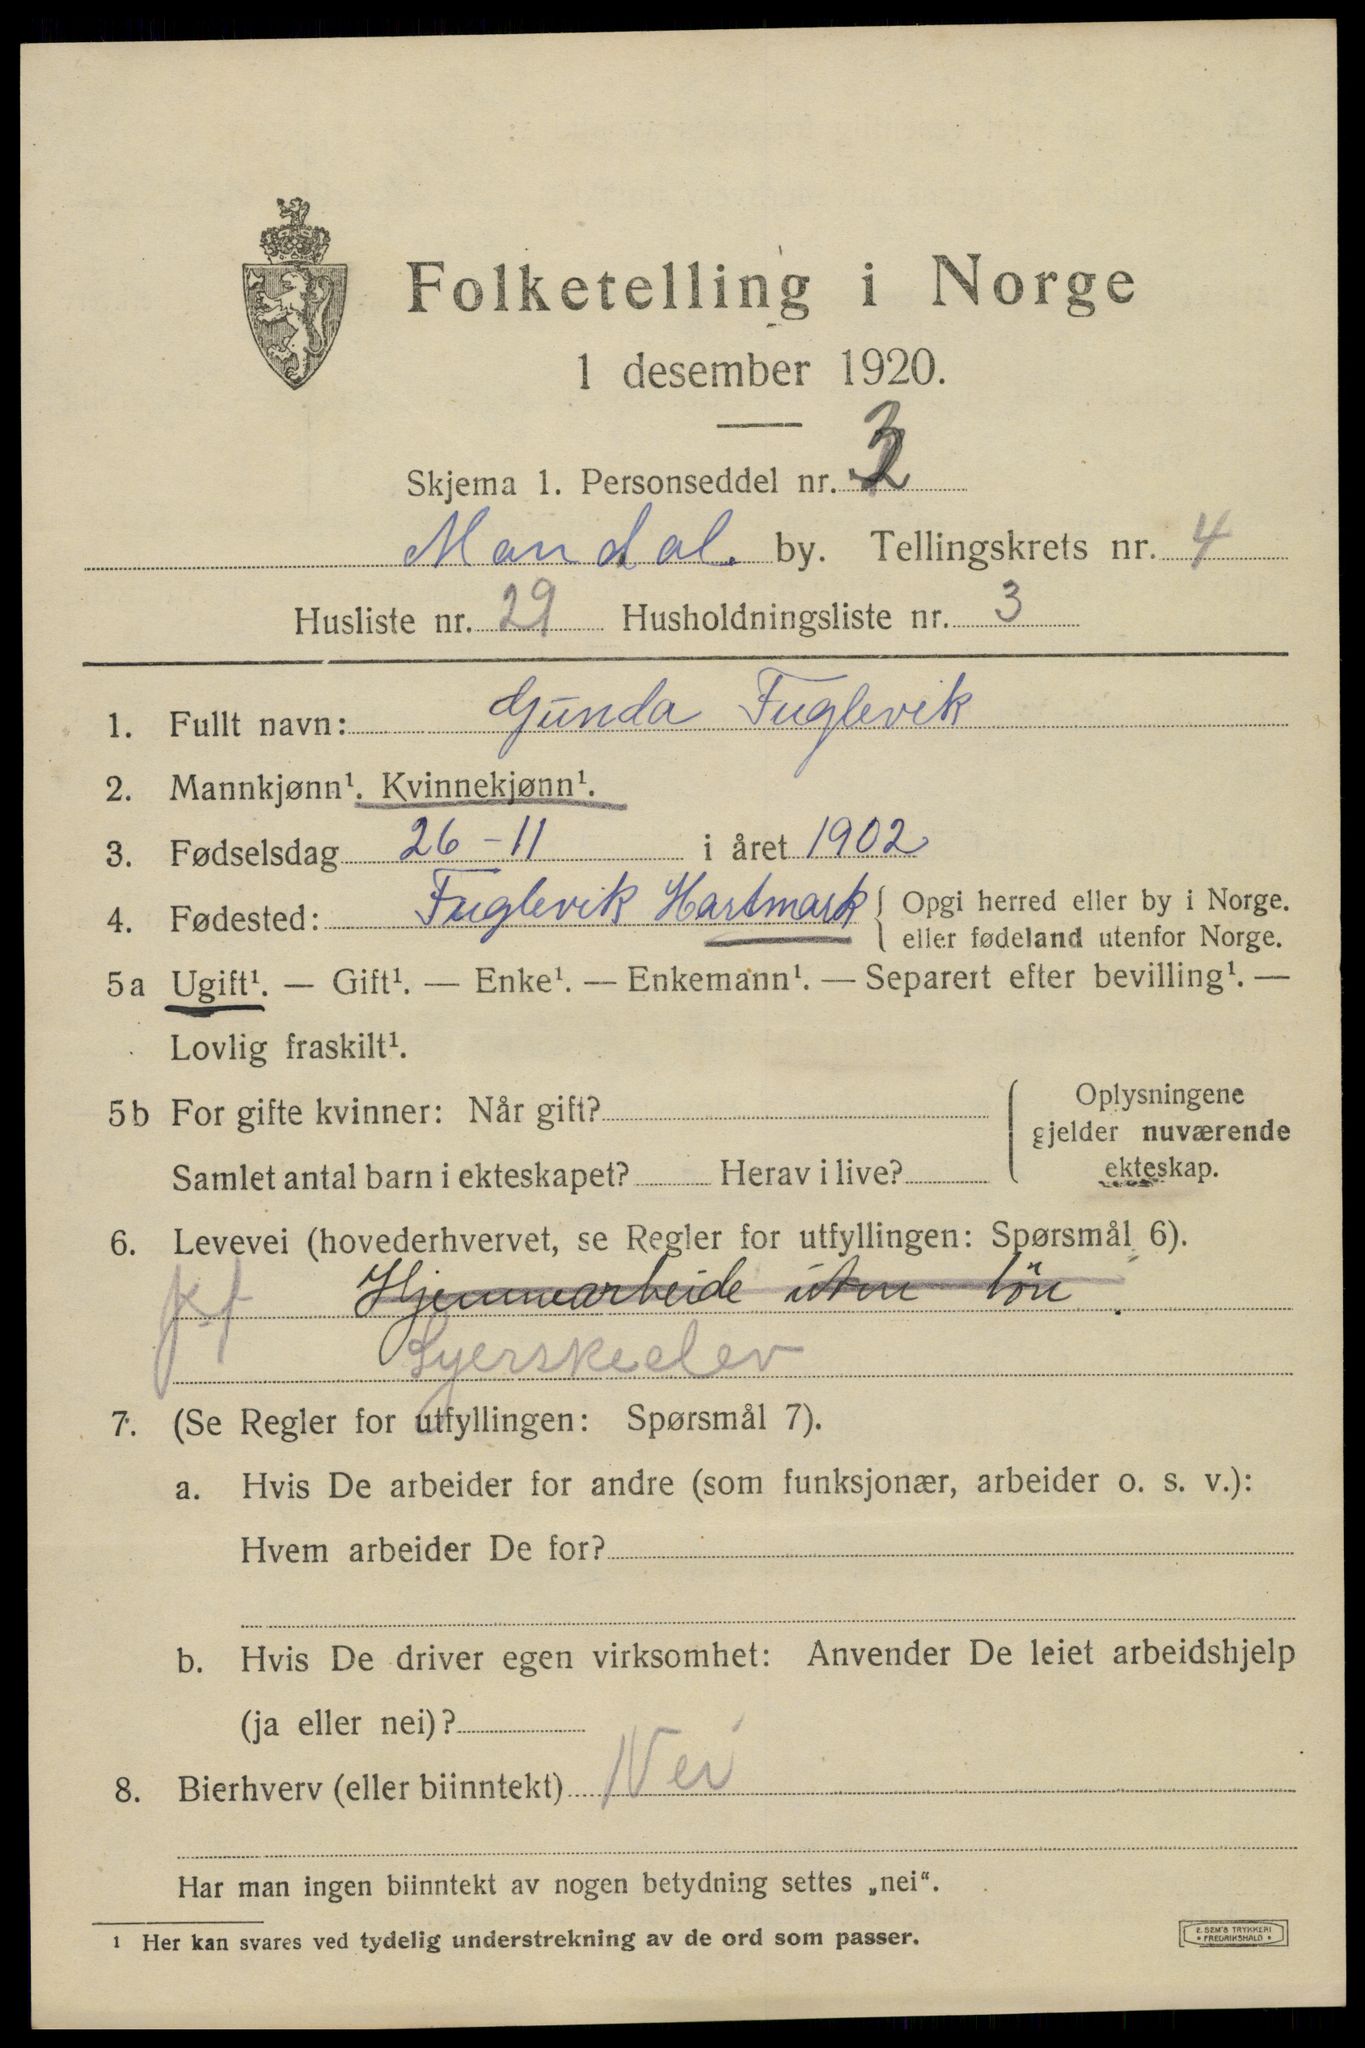 Folketelling i Norge
1 desember 1920.
Skjema 1. Personseddel nr. 3
Mandal. by. Tellingskrets nr. 4
Husliste nr. 29 Husholdningsliste nr. 3
1. Fullt navn: Gunda Fuglevik
2. Mannkjønn¹. Kvinnekjønn¹.
3. Fødselsdag 26-11 i året 1902
4. Fødested: Fuglevik Hartmark { Opgi herred eller by i Norge.
eller fødeland utenfor Norge.
5a Ugift¹. — Gift¹. — Enke¹. — Enkemann¹. — Separert efter bevilling¹. —
Lovlig fraskilt¹.
5b For gifte kvinner: Når gift?
Samlet antal barn i ekteskapet? Herav i live?
Oplysningene
gjelder nuværende
ekteskap.
6. Levevei (hovederhvervet, se Regler for utfyllingen: Spørsmål 6).
Hjemmearbeide uten lön.
Syerskeelev
7. (Se Regler for utfyllingen: Spørsmål 7).
a. Hvis De arbeider for andre (som funksjonær, arbeider o. s. v.):
Hvem arbeider De for?
b. Hvis De driver egen virksomhet: Anvender De leiet arbeidshjelp
(ja eller nei)?
8. Bierhverv (eller biinntekt) Nei
Har man ingen biinntekt av nogen betydning settes „nei“.
1 Her kan svares ved tydelig understrekning av de ord som passer.
E. SEM'S TRYKKERI
• FREDRIKSHALD •